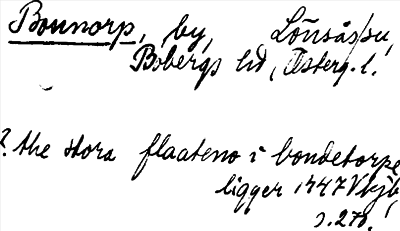 Bounorp, by, Lönsås sn,
Bobergs hd, Österg. l.
? the stora flaateno i bondetorpe
ligger 1447 Vkjb,
s. 270.